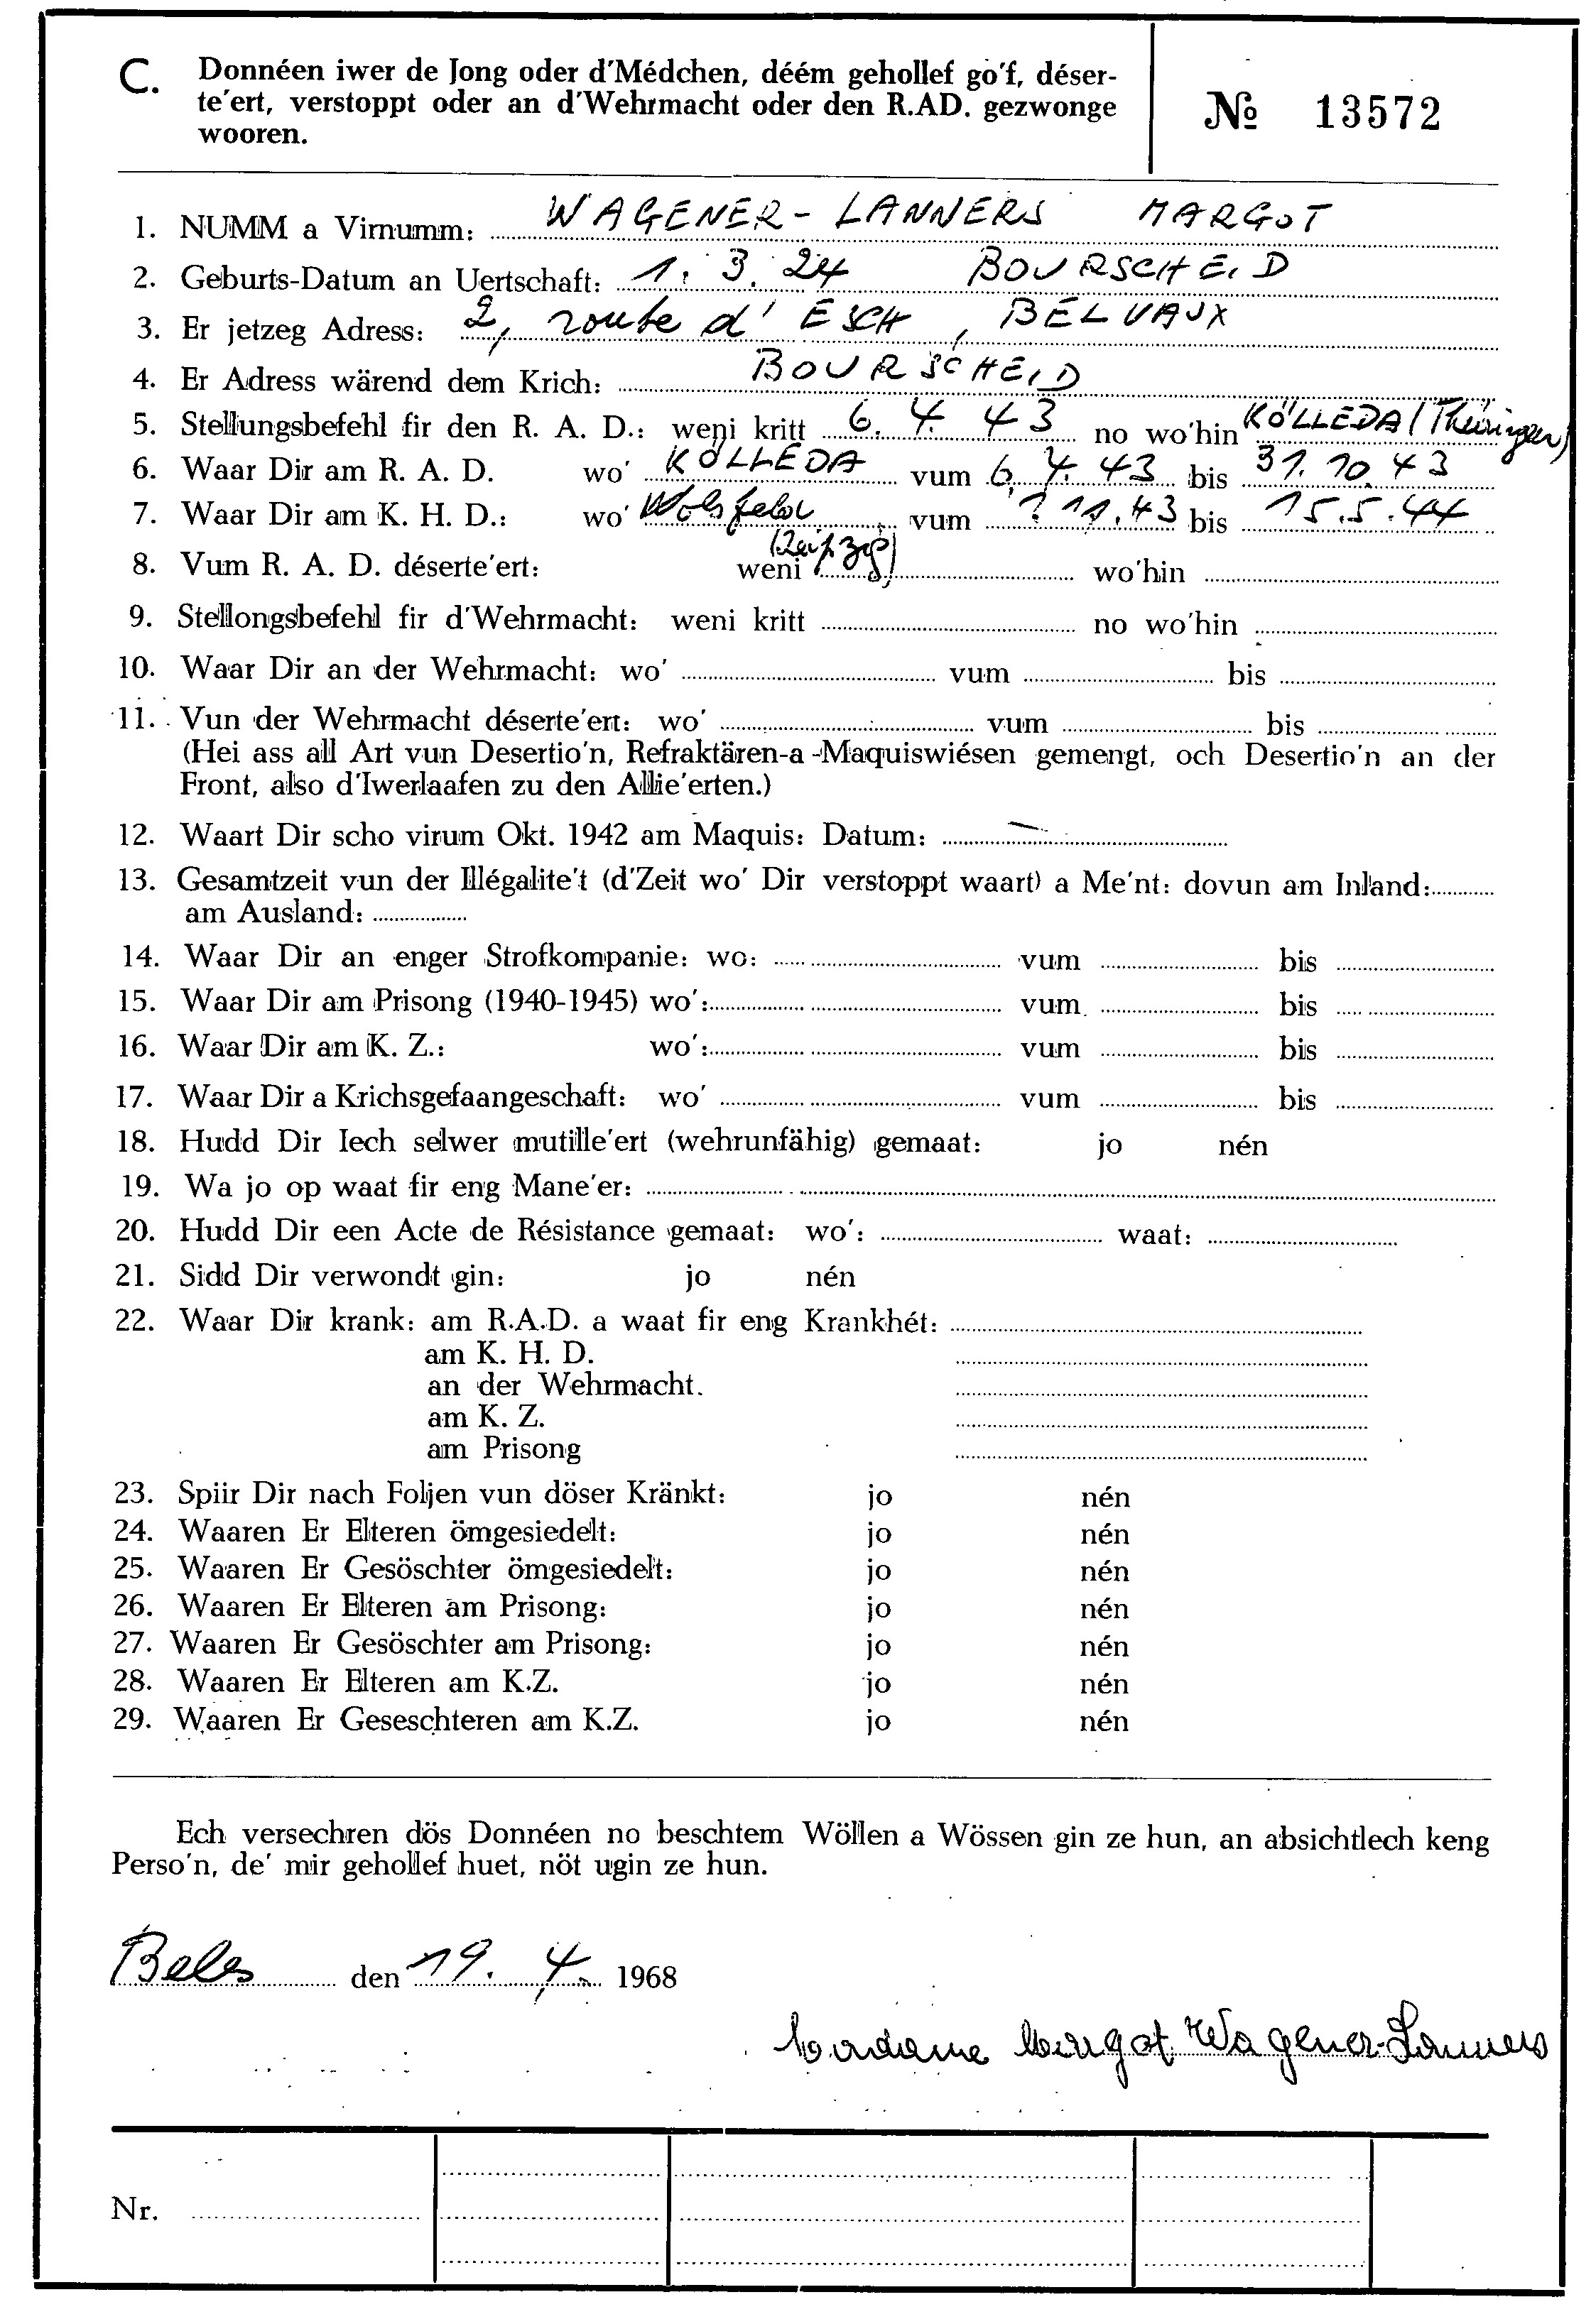 C. Donnéen iwer de Jong oder d'Médchen, déém gehollef go'f, déser-
te'ert, verstoppt oder an d'Wehrmacht oder den R.AD. gezwonge
wooren.
№ 13572
1. NUMM a Virnumm: WAGENER - LANNERS MARGOT
2. Geburts-Datum an Uertschaft: 1. 3. 24 BOURSCHEID
3. Er jetzeg Adress: 2, route d'ESCH, BELVAUX
4. Er Adress wärend dem Krich: BOURSCHEID
5. Stellungsbefehl fir den R. A. D.: weni kritt 6. 4. 43 no wo'hin KÖLLEDA (Thüringen)
6. Waar Dir am R. A. D. wo' KÖLLEDA vum 6. 4. 43 bis 31. 10. 43
7. Waar Dir am K. H. D.: wo' vum ? 11. 43 bis 15. 5. 44
(Leipzig)
8. Vum R. A. D. déserte'ert: weni wo'hin
9. Stellongsbefehl fir d'Wehrmacht: weni kritt no wo'hin
10. Waar Dir an der Wehrmacht: wo' vum bis
11. Vun der Wehrmacht déserte'ert: wo' vum bis
(Hei ass all Art vun Desertio'n, Refraktären-a -Maquiswiésen gemengt, och Desertio'n an der
Front, also d'Iwerlaafen zu den Allie'erten.)
12. Waart Dir scho virum Okt. 1942 am Maquis: Datum: —
13. Gesamtzeit vun der Illégalite't (d'Zeit wo' Dir verstoppt waart) a Me'nt: dovun am Inland:
am Ausland:
14. Waar Dir an enger Strofkompanie: wo: vum bis
15. Waar Dir am Prisong (1940-1945) wo': vum bis
16. Waar Dir am K. Z.: wo': vum bis
17. Waar Dir a Krichsgefaangeschaft: wo' vum bis
18. Hudd Dir Iech selwer mutille'ert (wehrunfähig) gemaat: jo nén
19. Wa jo op waat fir eng Mane'er:
20. Hudd Dir een Acte de Résistance gemaat: wo': waat:
21. Sidd Dir verwondt gin: jo nén
22. Waar Dir krank: am R.A.D. a waat fir eng Krankhét:
am K. H. D.
an der Wehrmacht.
am K. Z.
am Prisong
23. Spiir Dir nach Foljen vun döser Kränkt: jo nén
24. Waaren Er Elteren ömgesiedelt: jo nén
25. Waaren Er Gesöschter ömgesiedelt: jo nén
26. Waaren Er Elteren am Prisong: jo nén
27. Waaren Er Gesöschter am Prisong: jo nén
28. Waaren Er Elteren am K.Z. jo nén
29. Waaren Er Geseschteren am K.Z. jo nén
Ech versechren dös Donnéen no beschtem Wöllen a Wössen gin ze hun, an absichtlech keng
Perso'n, de' mir gehollef huet, nöt ugin ze hun.
Beles den 19. 4. 1968
Madame Margot Wagener-Lanners
Nr.